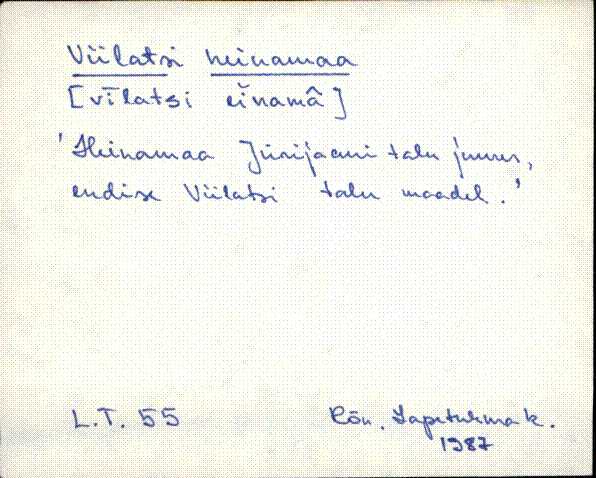 Viilatsi heinamaa
[vīlatsi eĭnamâ]
'Heinamaa Jürijaani talu juures,
endise Viilatsi talu maadel.'
L.T. 55
Rõn. Lapetukme k.
1987